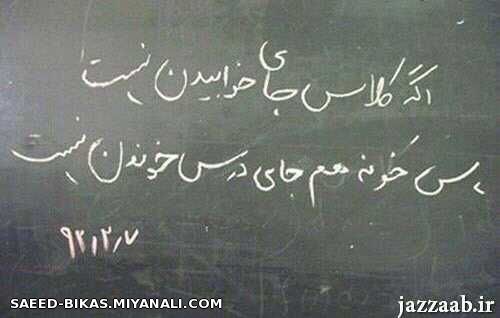 اگه کلاس جای خوابیدن نیست
پس خونه هم جای درس خوندن نیست
۹۲٫۲٫۷
SAEED-BIKAS.MIYANALI.COM
jazzaab.ir